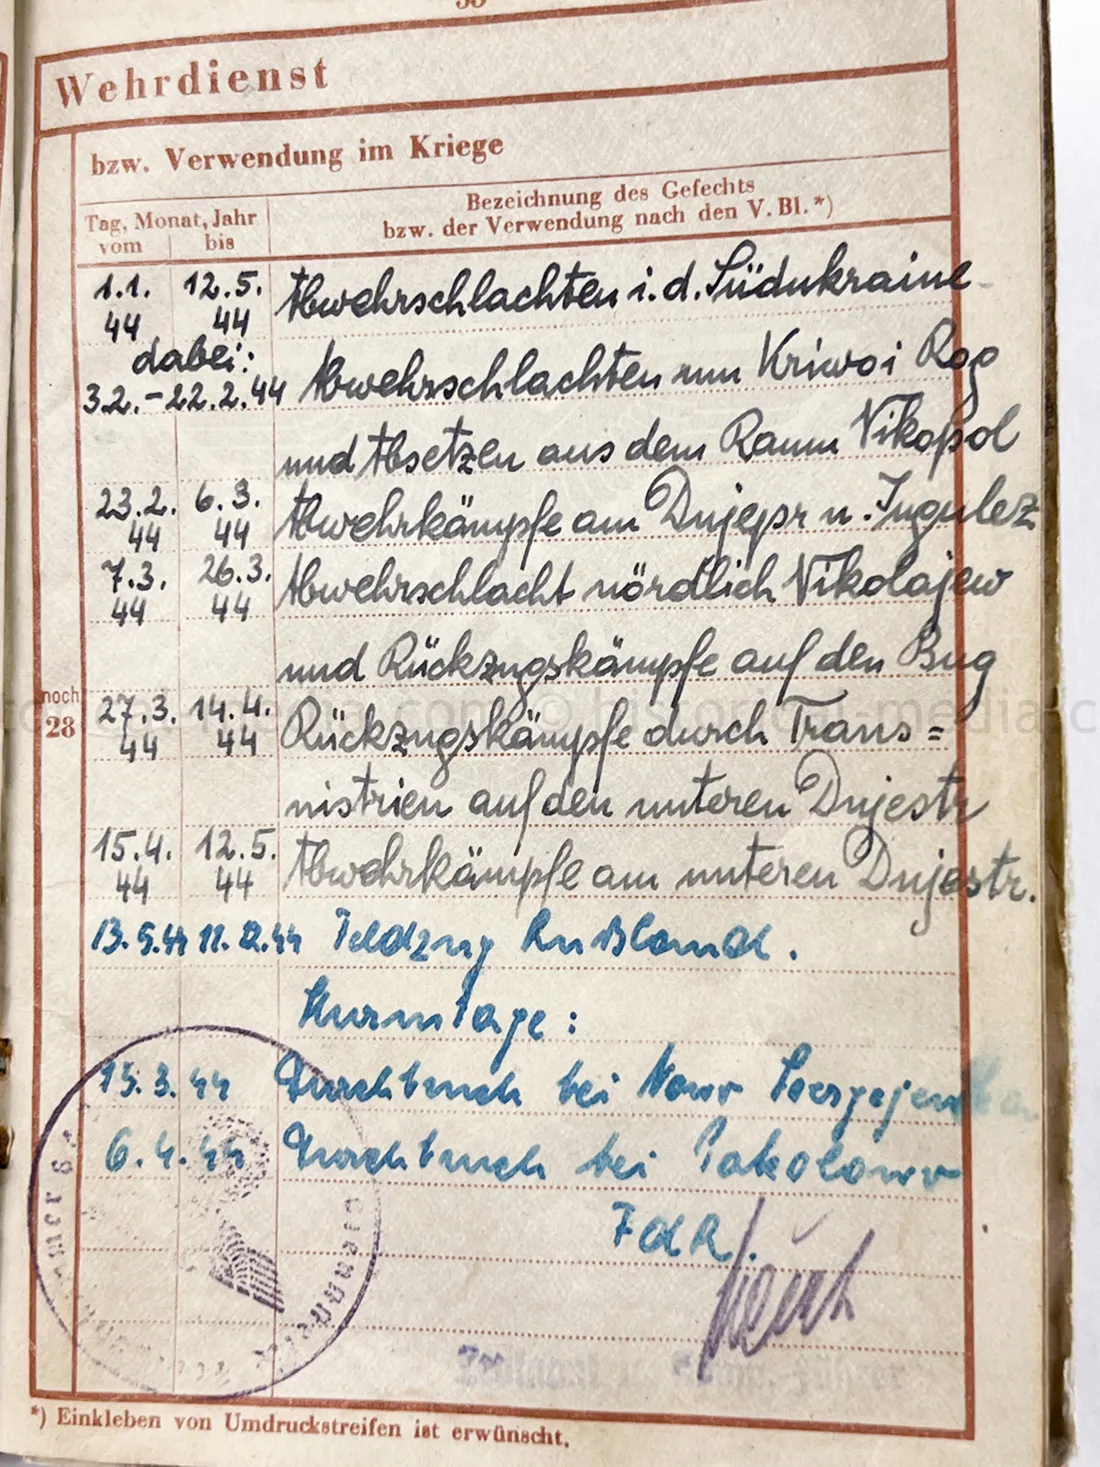 33
Wehrdienst
bzw. Verwendung im Kriege
Tag, Monat, Jahr
vom bis
Bezeichnung des Gefechts
bzw. der Verwendung nach den V. Bl.*)
1.1. 12.5. Abwehrschlachten i.d. Südukraine
44 44
dabei:
3.2.-22.2.44 Abwehrschlachten um Kriwoi Rog
und Absetzen aus dem Raum Nikopol
23.2. 6.3. Abwehrkämpfe am Dnjepr u. Ingulez
44 44
7.3. 26.3. Abwehrschlacht nördlich Nikolajew
44 44
und Rückzugskämpfe auf den Bug
noch
28
27.3. 14.4. Rückzugskämpfe durch Trans=
44 44
nistrien auf den unteren Dnjestr
15.4. 12.5. Abwehrkämpfe am unteren Dnjestr.
44 44
13.5.44 11.12.44 Feldzug Rußland.
Sturmtage:
15.3.44 Durchbruch bei Nowo
6.4.44 Durchbruch bei
FdR.
*) Einkleben von Umdruckstreifen ist erwünscht.